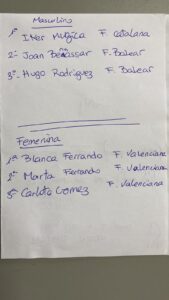 Masculino
1º Iker Mugica F. Catalana
2º Joan Bennassar F. Balear
3º Hugo Rodriguez F. Balear
Femenina
1ª Blanca Ferrando F. Valenciana
2ª Marta Ferrando F. Valenciana
3ª Carlota Gomez F. Valenciana